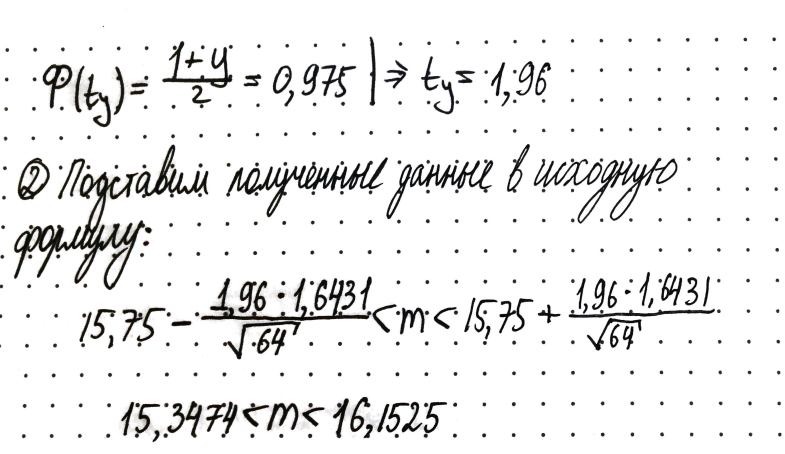 Φ(tγ) = (1+γ)/2 = 0,975 | ⇒ tγ = 1,96
② Подставим полученные данные в исходную
формулу:
15,75 − (1,96 · 1,6431)/√64 < m < 15,75 + (1,96 · 1,6431)/√64
15,3474 < m < 16,1525